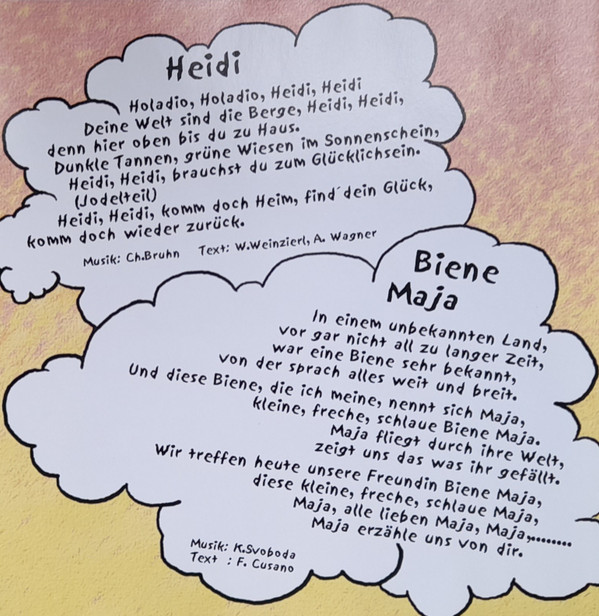 Heidi
Holadio, Holadio, Heidi, Heidi
Deine Welt sind die Berge, Heidi, Heidi,
denn hier oben bis du zu Haus.
Dunkle Tannen, grüne Wiesen im Sonnenschein,
Heidi, Heidi, brauchst du zum Glücklichsein.
(Jodelteil)
Heidi, Heidi, komm doch Heim, find´dein Glück,
komm doch wieder zurück.
Musik: Ch.Bruhn Text: W.Weinzierl, A. Wagner
Biene
Maja
In einem unbekannten Land,
vor gar nicht all zu langer Zeit,
war eine Biene sehr bekannt,
von der sprach alles weit und breit.
Und diese Biene, die ich meine, nennt sich Maja,
kleine, freche, schlaue Biene Maja.
Maja fliegt durch ihre Welt,
zeigt uns das was ihr gefällt.
Wir treffen heute unsere Freundin Biene Maja,
diese kleine, freche, schlaue Maja,
Maja, alle lieben Maja, Maja,........
Maja erzähle uns von dir.
Musik: K.Svoboda
Text : F. Cusano